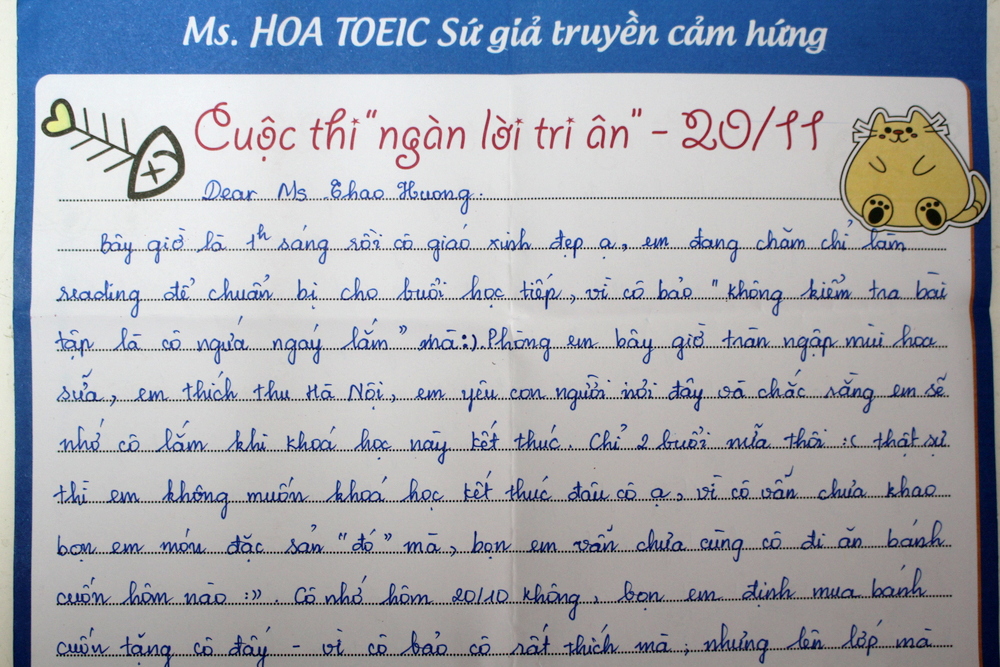 Ms. HOA TOEIC Sứ giả truyền cảm hứng
Cuộc thi "ngàn lời tri ân" - 20/11
Dear Ms Thao Huong.
Bây giờ là 1h sáng rồi cô giáo xinh đẹp ạ, em đang chăm chỉ làm
reading để chuẩn bị cho buổi học tiếp, vì cô bảo "không kiểm tra bài
tập là cô ngứa ngáy lắm" mà :). Phòng em bây giờ tràn ngập mùi hoa
sữa, em thích thu Hà Nội, em yêu con người nơi đây và chắc rằng em sẽ
nhớ cô lắm khi khoá học này kết thúc. Chỉ 2 buổi nữa thôi :( thật sự
thì em không muốn khoá học kết thúc đâu cô ạ, vì cô vẫn chưa khao
bọn em món đặc sản "đó" mà, bọn em vẫn chưa cùng cô đi ăn bánh
cuốn hôm nào :)). Cô nhớ hôm 20/10 không, bọn em định mua bánh
cuốn tặng cô đấy - vì cô bảo cô rất thích mà, nhưng lên lớp mà